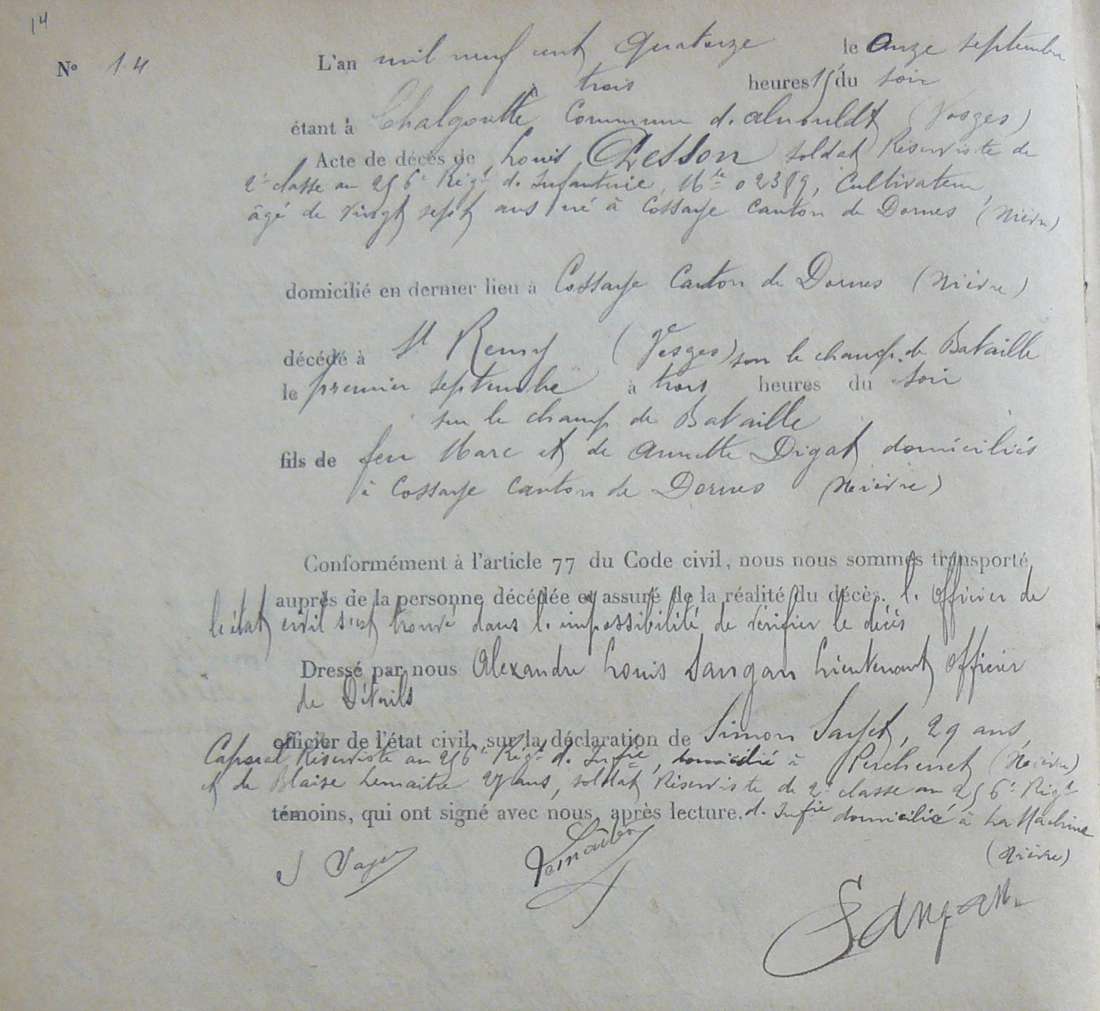 14
N° 14
L'an mil neuf cent quatorze le onze septembre
à trois heures 15 du soir
étant à Chalgoutte Commune d. (Vosges)
Acte de décès de Louis Chesson soldat Réserviste de
2e classe au 256e Régt d. Infanterie, Mle 02389, Cultivateur
âgé de vingt sept ans né à Cossaye Canton de Dornes (Nièvre)
domicilié en dernier lieu à Cossaye Canton de Dornes (Nièvre)
décédé à St Remy (Vosges) sur le champ de Bataille
le premier septembre à trois heures du soir
sur le champ de Bataille
fils de feu Marc et de Annette Digat domiciliés
à Cossaye Canton de Dornes (Nièvre)
Conformément à l'article 77 du Code civil, nous nous sommes transporté
auprès de la personne décédée et assuré de la réalité du décès. l. Officier de
l'état civil s'est trouvé dans l. impossibilité de vérifier le décès
Dressé par nous Alexandre Louis Sangan Lieutenant Officier
de Détails
officier de l'état civil, sur la déclaration de Simon 29 ans,
Caporal Réserviste au 256e Régt d. Infie, domicilié à (Nièvre)
et de Blaise Lemaitre 27 ans, soldat Réserviste de 2e classe au 256e Régt
témoins, qui ont signé avec nous, après lecture. d. Infie domicilié à La Machine
(Nièvre)
Lemaitre
Sangan